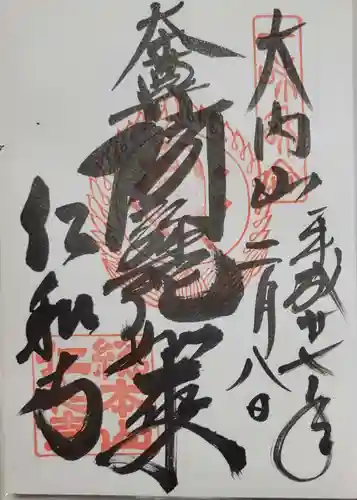 大内山
平成廿七年
二月八日
本尊
阿弥陀如来
仁和寺
総本山
仁和寺